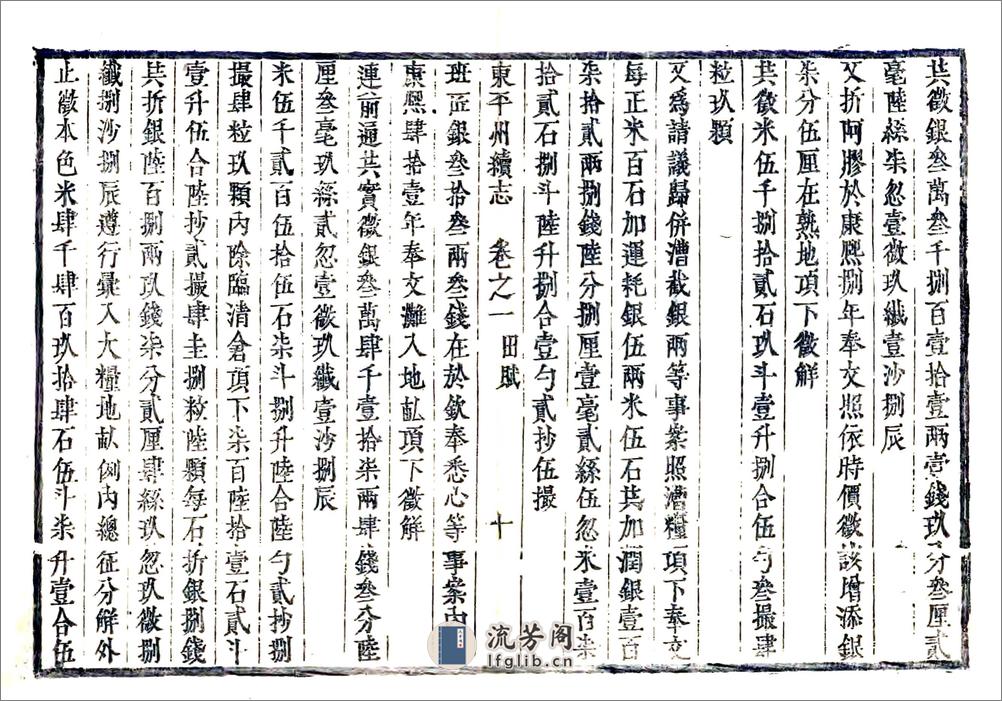 共徵銀叁萬叁千捌百壹拾壹兩壹錢玖分叁厘貳
毫陸絲柒忽壹微玖纖壹沙捌辰
又折阿膠於康熙捌年奉文照依時價徵該增添銀
柒分伍厘在熟地項下徵解
共徵米伍千捌拾貳石玖斗壹升捌合伍勺叁撮肆
粒玖顆
又為請議歸併漕截銀兩等事案照漕糧項下奉文
每正米百石加運耗銀伍兩米伍石共加潤銀壹百
柒拾貳兩捌錢陸分捌厘壹毫貳絲伍忽米壹百柒
拾貳石捌斗陸升捌合壹勺貳抄伍撮
東平州續志 卷之一 田賦 十
班匠銀叁拾叁兩叁錢在於欽奉悉心等事案內
康熙肆拾壹年奉文灘入地畝項下徵解
連前通共實徵銀叁萬肆千壹拾柒兩肆錢叁分陸
厘叁毫玖絲貳忽壹微玖纖壹沙捌辰
米伍千貳百伍拾伍石柒斗捌升陸合陸勺貳抄捌
撮肆粒玖顆內除臨清倉項下柒百陸拾壹石貳斗
壹升伍合陸抄貳撮肆圭捌粒陸顆每石折銀捌錢
共折銀陸百捌兩玖錢柒分貳厘肆絲玖忽玖微捌
纖捌沙捌辰遵行彙入大糧地畝例內總征分解外
止徵本色米肆千肆百玖拾肆石伍斗柒升壹合伍
流芳阁
lfglib.cn